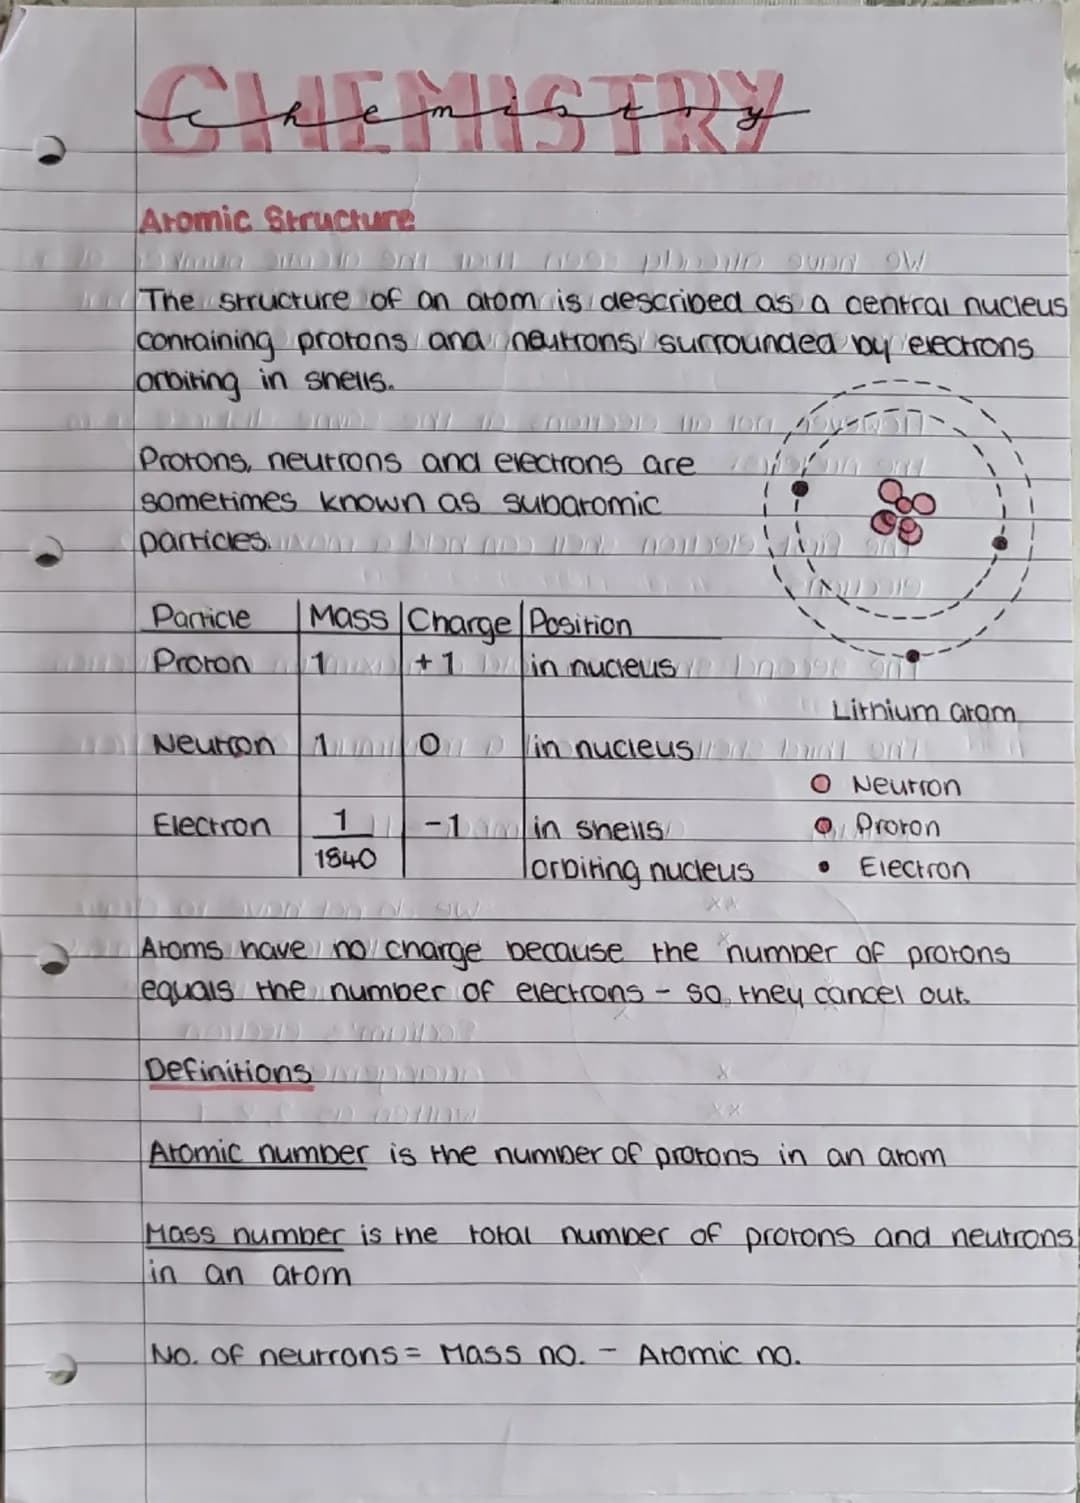 CHEMISTRY
chemistry
Atomic Structure
The structure of an atom is described as a central nucleus
containing protons and neutrons surrounded by electrons
orbiting in shells.
Protons, neutrons and electrons are
sometimes known as subatomic
particles.
Particle Mass Charge Position
Proton 1 +1 in nucleus
Lithium atom
Neutron 1 0 in nucleus
Neutron
Electron 1/1840 -1 in shells
orbiting nucleus
Proton
Electron
Atoms have no charge because the number of protons
equals the number of electrons - so, they cancel out.
Definitions
Atomic number is the number of protons in an atom
Mass number is the total number of protons and neutrons
in an atom
No. of neutrons = Mass no. - Atomic no.